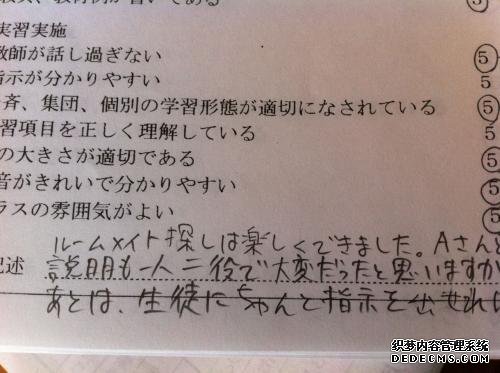 実習実施
教師が話し過ぎない 5
指示が分かりやすい 5
斉、集団、個別の学習形態が適切になされている 5
習項目を正しく理解している 5
の大きさが適切である 5
音がきれいで分かりやすい 5
ラスの雰囲気がよい 5
ルームメイト探しは楽しくできました。Aさんと
記述 説明も一人二役で大変だったと思いますが
あとは、生徒にちゃんと指示を出せれば
织梦内容管理系统
DEDECMS.COM